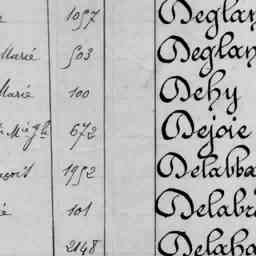 1097 Deglan
Marie 503 Deglan
Marie 100 Dehy
672 Dejoie
1952 Delabba
101 Delabr
2148 Delaha